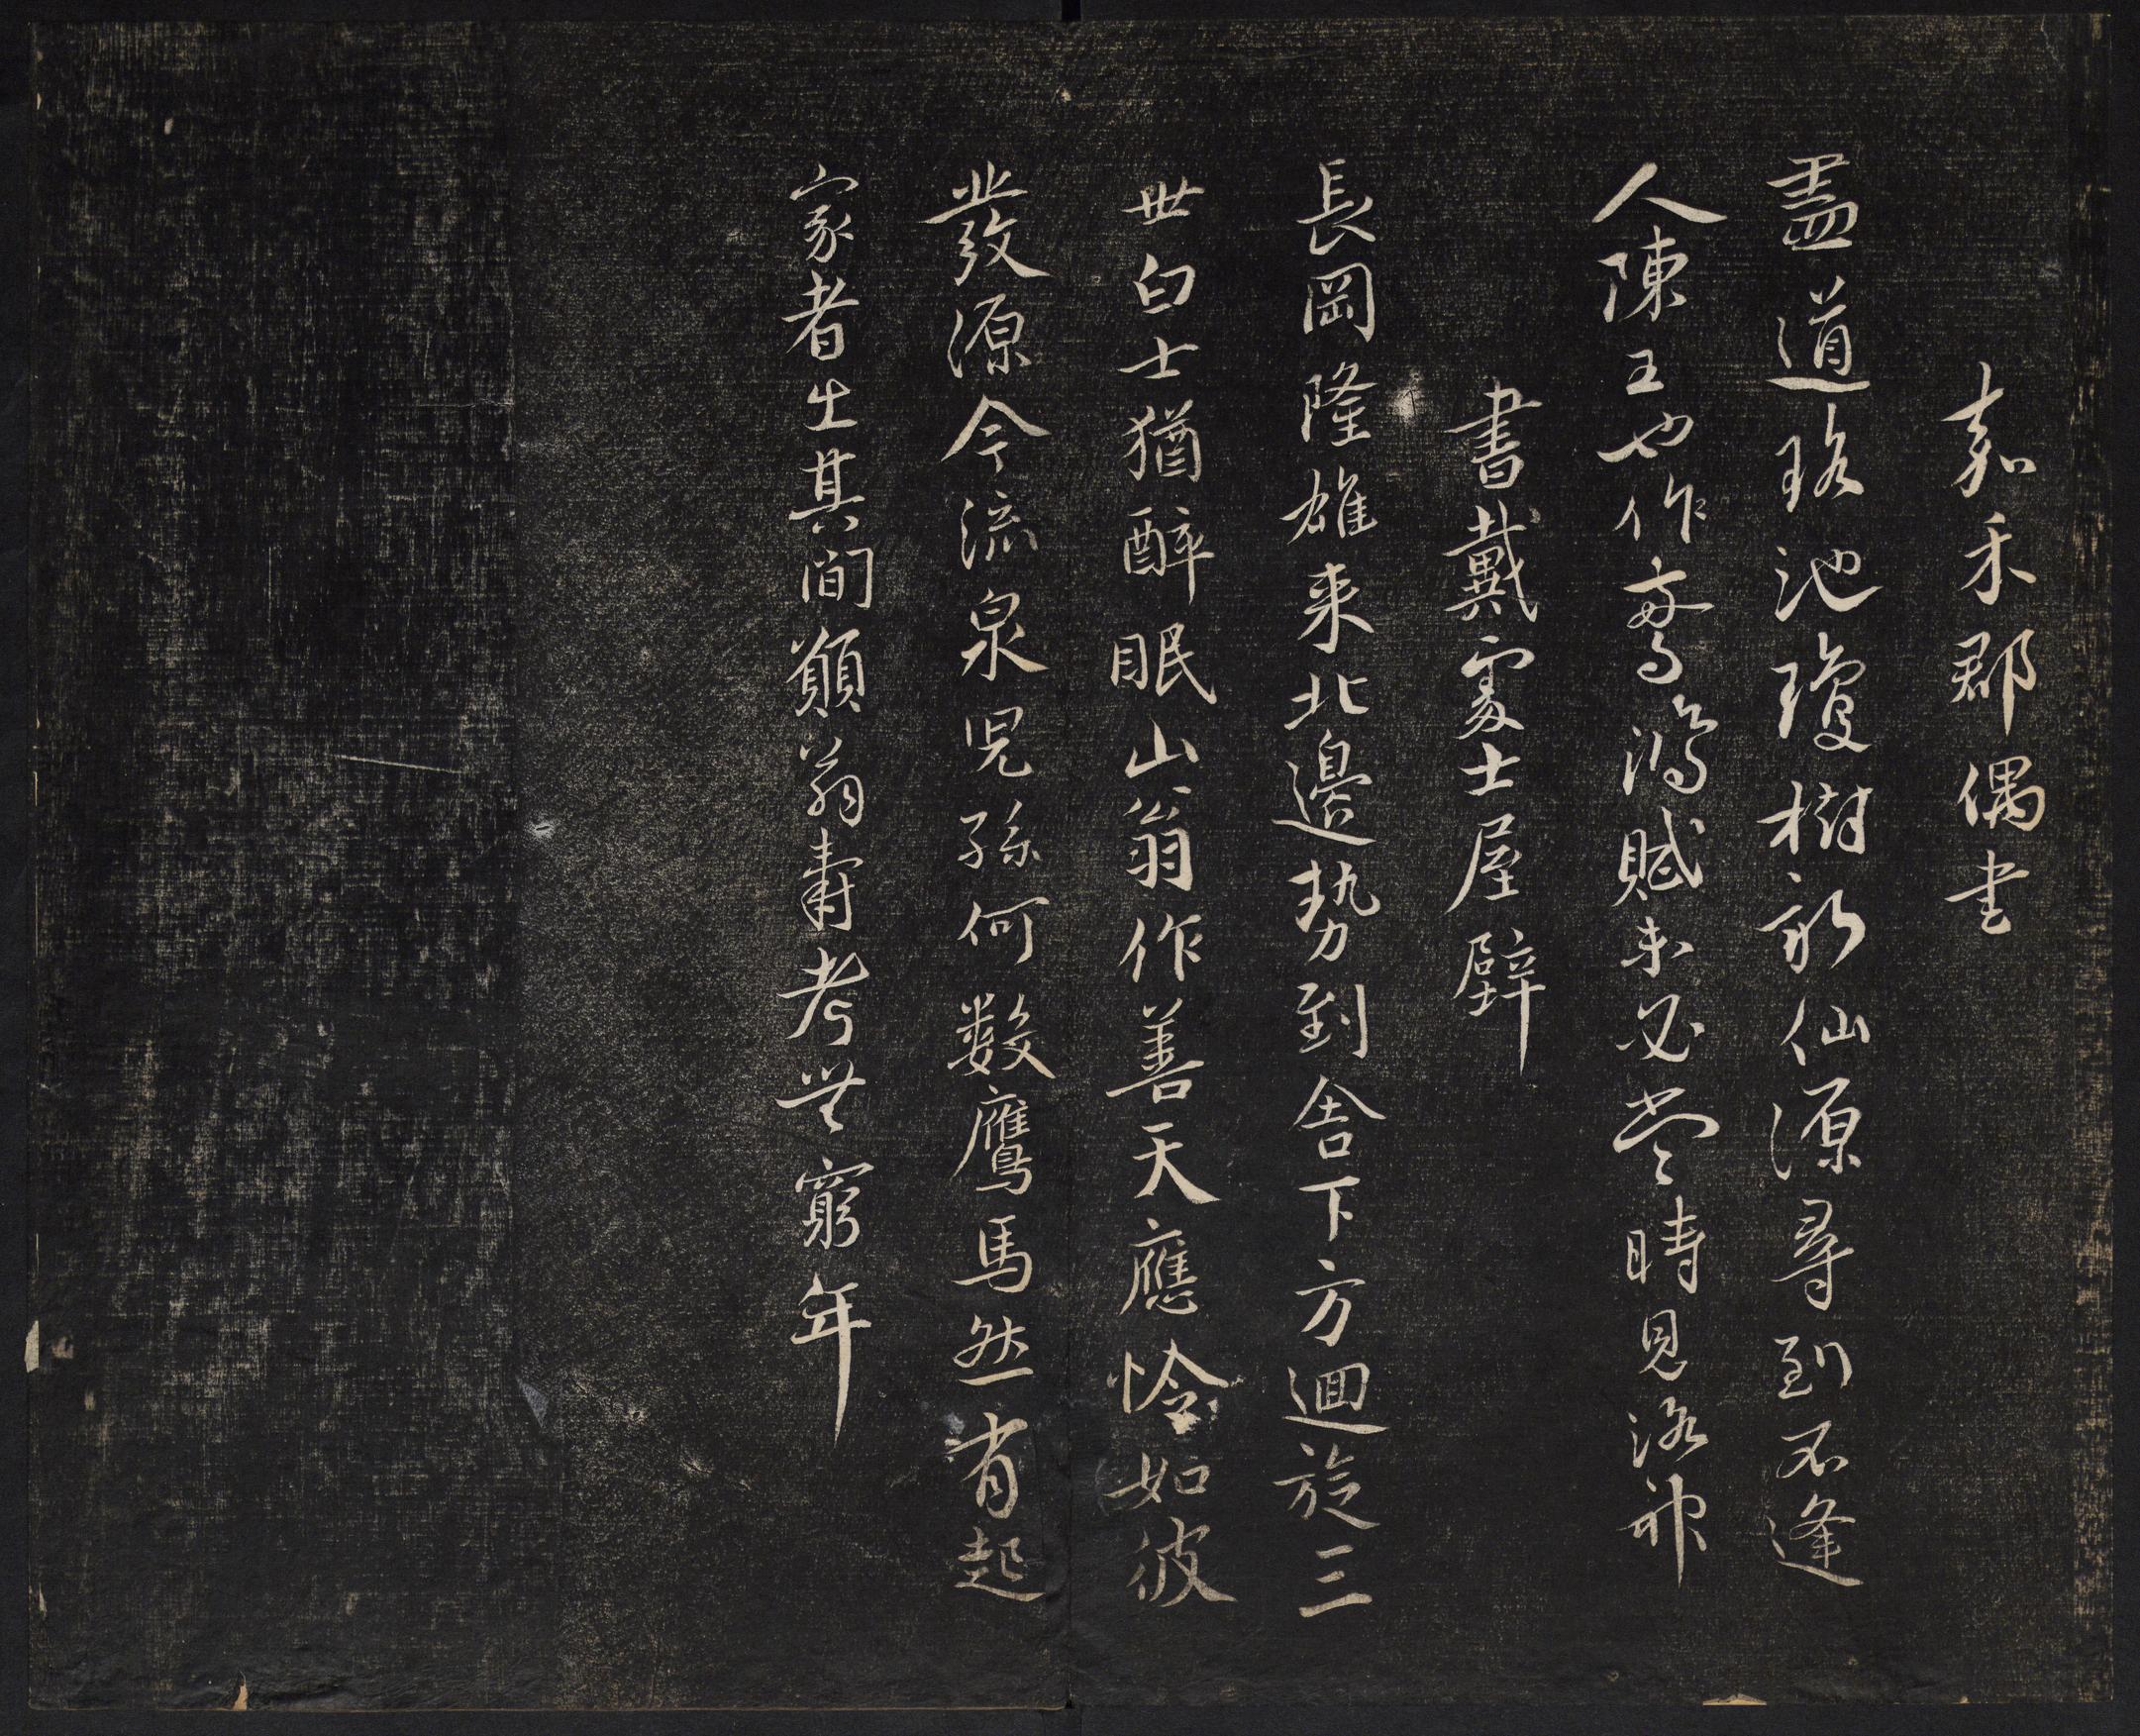 嘉禾郡偶書
盡道瑤池瓊樹新仙源尋到不逢
人陳王也作驚鴻賦未必當時見洛神
書戴處士屋壁
長岡隆雄来北邊勢到舍下方迴旋三
世白士猶醉眠山翁作善天應怜如彼
發源今流泉児孫何數鷹馬然有起
家者生其間願翁壽考無窮年